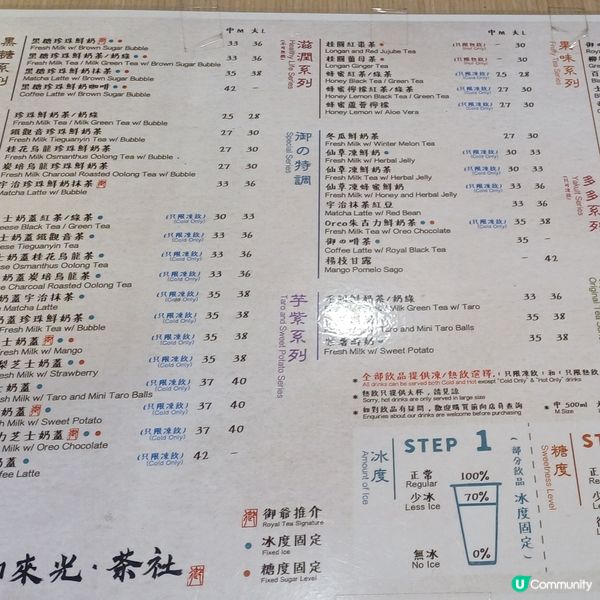 黑糖系列
中M 大L
黑糖珍珠鮮奶 33 36
Fresh Milk w/ Brown Sugar Bubble
黑糖珍珠鮮奶茶/奶綠 33 36
Fresh Milk Tea / Milk Green Tea w/ Brown Sugar Bubble
黑糖珍珠鮮奶抹茶 35 38
Matcha Latte w/ Brown Sugar Bubble
黑糖珍珠鮮奶咖啡 42 –
Coffee Latte w/ Brown Sugar Bubble
珍珠鮮奶茶/奶綠 25 28
Fresh Milk Tea / Milk Green Tea w/ Bubble
鐵觀音珍珠鮮奶茶 27 30
Fresh Milk Tieguanyin Tea w/ Bubble
桂花烏龍珍珠鮮奶茶 27 30
Fresh Milk Osmanthus Oolong Tea w/ Bubble
炭焙烏龍珍珠鮮奶茶 27 30
Fresh Milk Charcoal Roasted Oolong Tea w/ Bubble
宇治珍珠鮮奶抹茶 33 36
Matcha Latte w/ Bubble
士奶蓋紅茶/綠茶 (只限凍飲) 30 33
Black Tea / Green Tea (Cold Only)
士奶蓋鐵觀音茶 (只限凍飲) 33 36
Tieguanyin Tea (Cold Only)
士奶蓋桂花烏龍茶 (只限凍飲) 33 36
Osmanthus Oolong Tea (Cold Only)
士奶蓋炭焙烏龍茶 (只限凍飲) 33 36
Charcoal Roasted Oolong Tea (Cold Only)
奶蓋宇治抹茶 (只限凍飲) 35 38
Matcha Latte (Cold Only)
奶蓋珍珠鮮奶茶 (只限凍飲) 35 38
Fresh Milk Tea w/ Bubble (Cold Only)
士奶蓋 (只限凍飲) 35 38
Milk w/ Mango (Cold Only)
梨芝士奶蓋 (只限凍飲) 35 38
Milk w/ Strawberry (Cold Only)
奶蓋 (只限凍飲) 37 40
Milk w/ Taro and Mini Taro Balls (Cold Only)
奶蓋 (只限凍飲) 37 40
Milk w/ Sweet Potato (Cold Only)
力芝士奶蓋 (只限凍飲) 37 40
Milk w/ Oreo Chocolate (Cold Only)
奶蓋 (只限凍飲) 42 –
Latte (Cold Only)
來光·茶社
御爺推介
Royal Tea Signature
冰度固定
Fixed Ice
糖度固定
Fixed Sugar Level
滋潤系列
Healthy Life Series
中M 大L
桂圓紅棗茶 (只限熱飲) – 30
Longan and Red Jujube Tea (Hot Only)
桂圓薑母茶 (只限熱飲) – 30
Longan Ginger Tea (Hot Only)
蜂蜜紅茶/綠茶 (只限凍飲) 25 28
Honey Black Tea / Green Tea (Cold Only)
蜂蜜檸檬紅茶/綠茶 (只限凍飲) 27 30
Honey Lemon Black Tea / Green Tea (Cold Only)
蜂蜜蘆薈檸檬 (只限凍飲) 27 30
Honey Lemon w/ Aloe Vera (Cold Only)
御の特調
Special Series
冬瓜鮮奶茶 27 30
Fresh Milk w/ Winter Melon Tea
仙草凍鮮奶 (只限凍飲) 30 33
Fresh Milk w/ Herbal Jelly (Cold Only)
仙草凍鮮奶茶 (只限凍飲) 27 30
Fresh Milk Tea w/ Herbal Jelly (Cold Only)
仙草凍蜂蜜鮮奶 (只限凍飲) 33 36
Fresh Milk w/ Honey and Herbal Jelly (Cold Only)
宇治抹茶紅豆 33 36
Matcha Latte w/ Red Bean
Oreo朱古力鮮奶 (只限凍飲) 35 38
Fresh Milk Tea w/ Oreo Chocolate (Cold Only)
御の啡茶 35 –
Coffee Latte w/ Royal Black Tea
楊枝甘露 – 42
Mango Pomelo Sago
芋紫系列
Taro and Sweet Potato Series
鮮奶茶/奶綠 33 36
Milk Green Tea w/ Taro
35 38
Taro and Mini Taro Balls
鮮奶 35 38
Fresh Milk w/ Sweet Potato
果味系列
Fruit Tea Series
多多系列
Yakult Series
Original Tea
* 全部飲品提供凍/熱飲選擇,(只限凍飲)和(只限熱飲
All drinks can be served both Cold and Hot except "Cold Only" & "Hot Only" drinks
* 熱飲只提供大杯,請見諒
Sorry, hot drinks are only served in large size
* 如對飲品有疑問,歡迎購買前向店員查詢
Enquiries about our drinks are welcome before purchasing
中 500ml
M Size
冰度
Amount of Ice
STEP 1
(部分飲品冰度固定)
正常 100%
Regular
少冰 70%
Less Ice
無冰 0%
No Ice
糖度
Sweetness Level
ST
正
Reg
少
Less
U Community